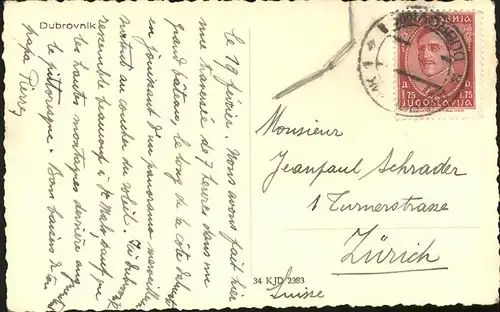 Dubrovnik
Le 19 février. Nous avons fait hier
une traversée de 7 heures dans un
grand bâteau, le long de la côte dalmate
en jouissant d'un panorama merveilleux
surtout au coucher du soleil.
ressemble beaucoup à St Malo, sauf que
les hautes montagnes derrière
le pittoresque. Bons baisers de ton
papa Pierre
Monsieur
Jeanpaul Schrader
1 Turnerstrasse
Zürich
Suisse
34 KJD 2383
75 75
JUGOSLAVIJA